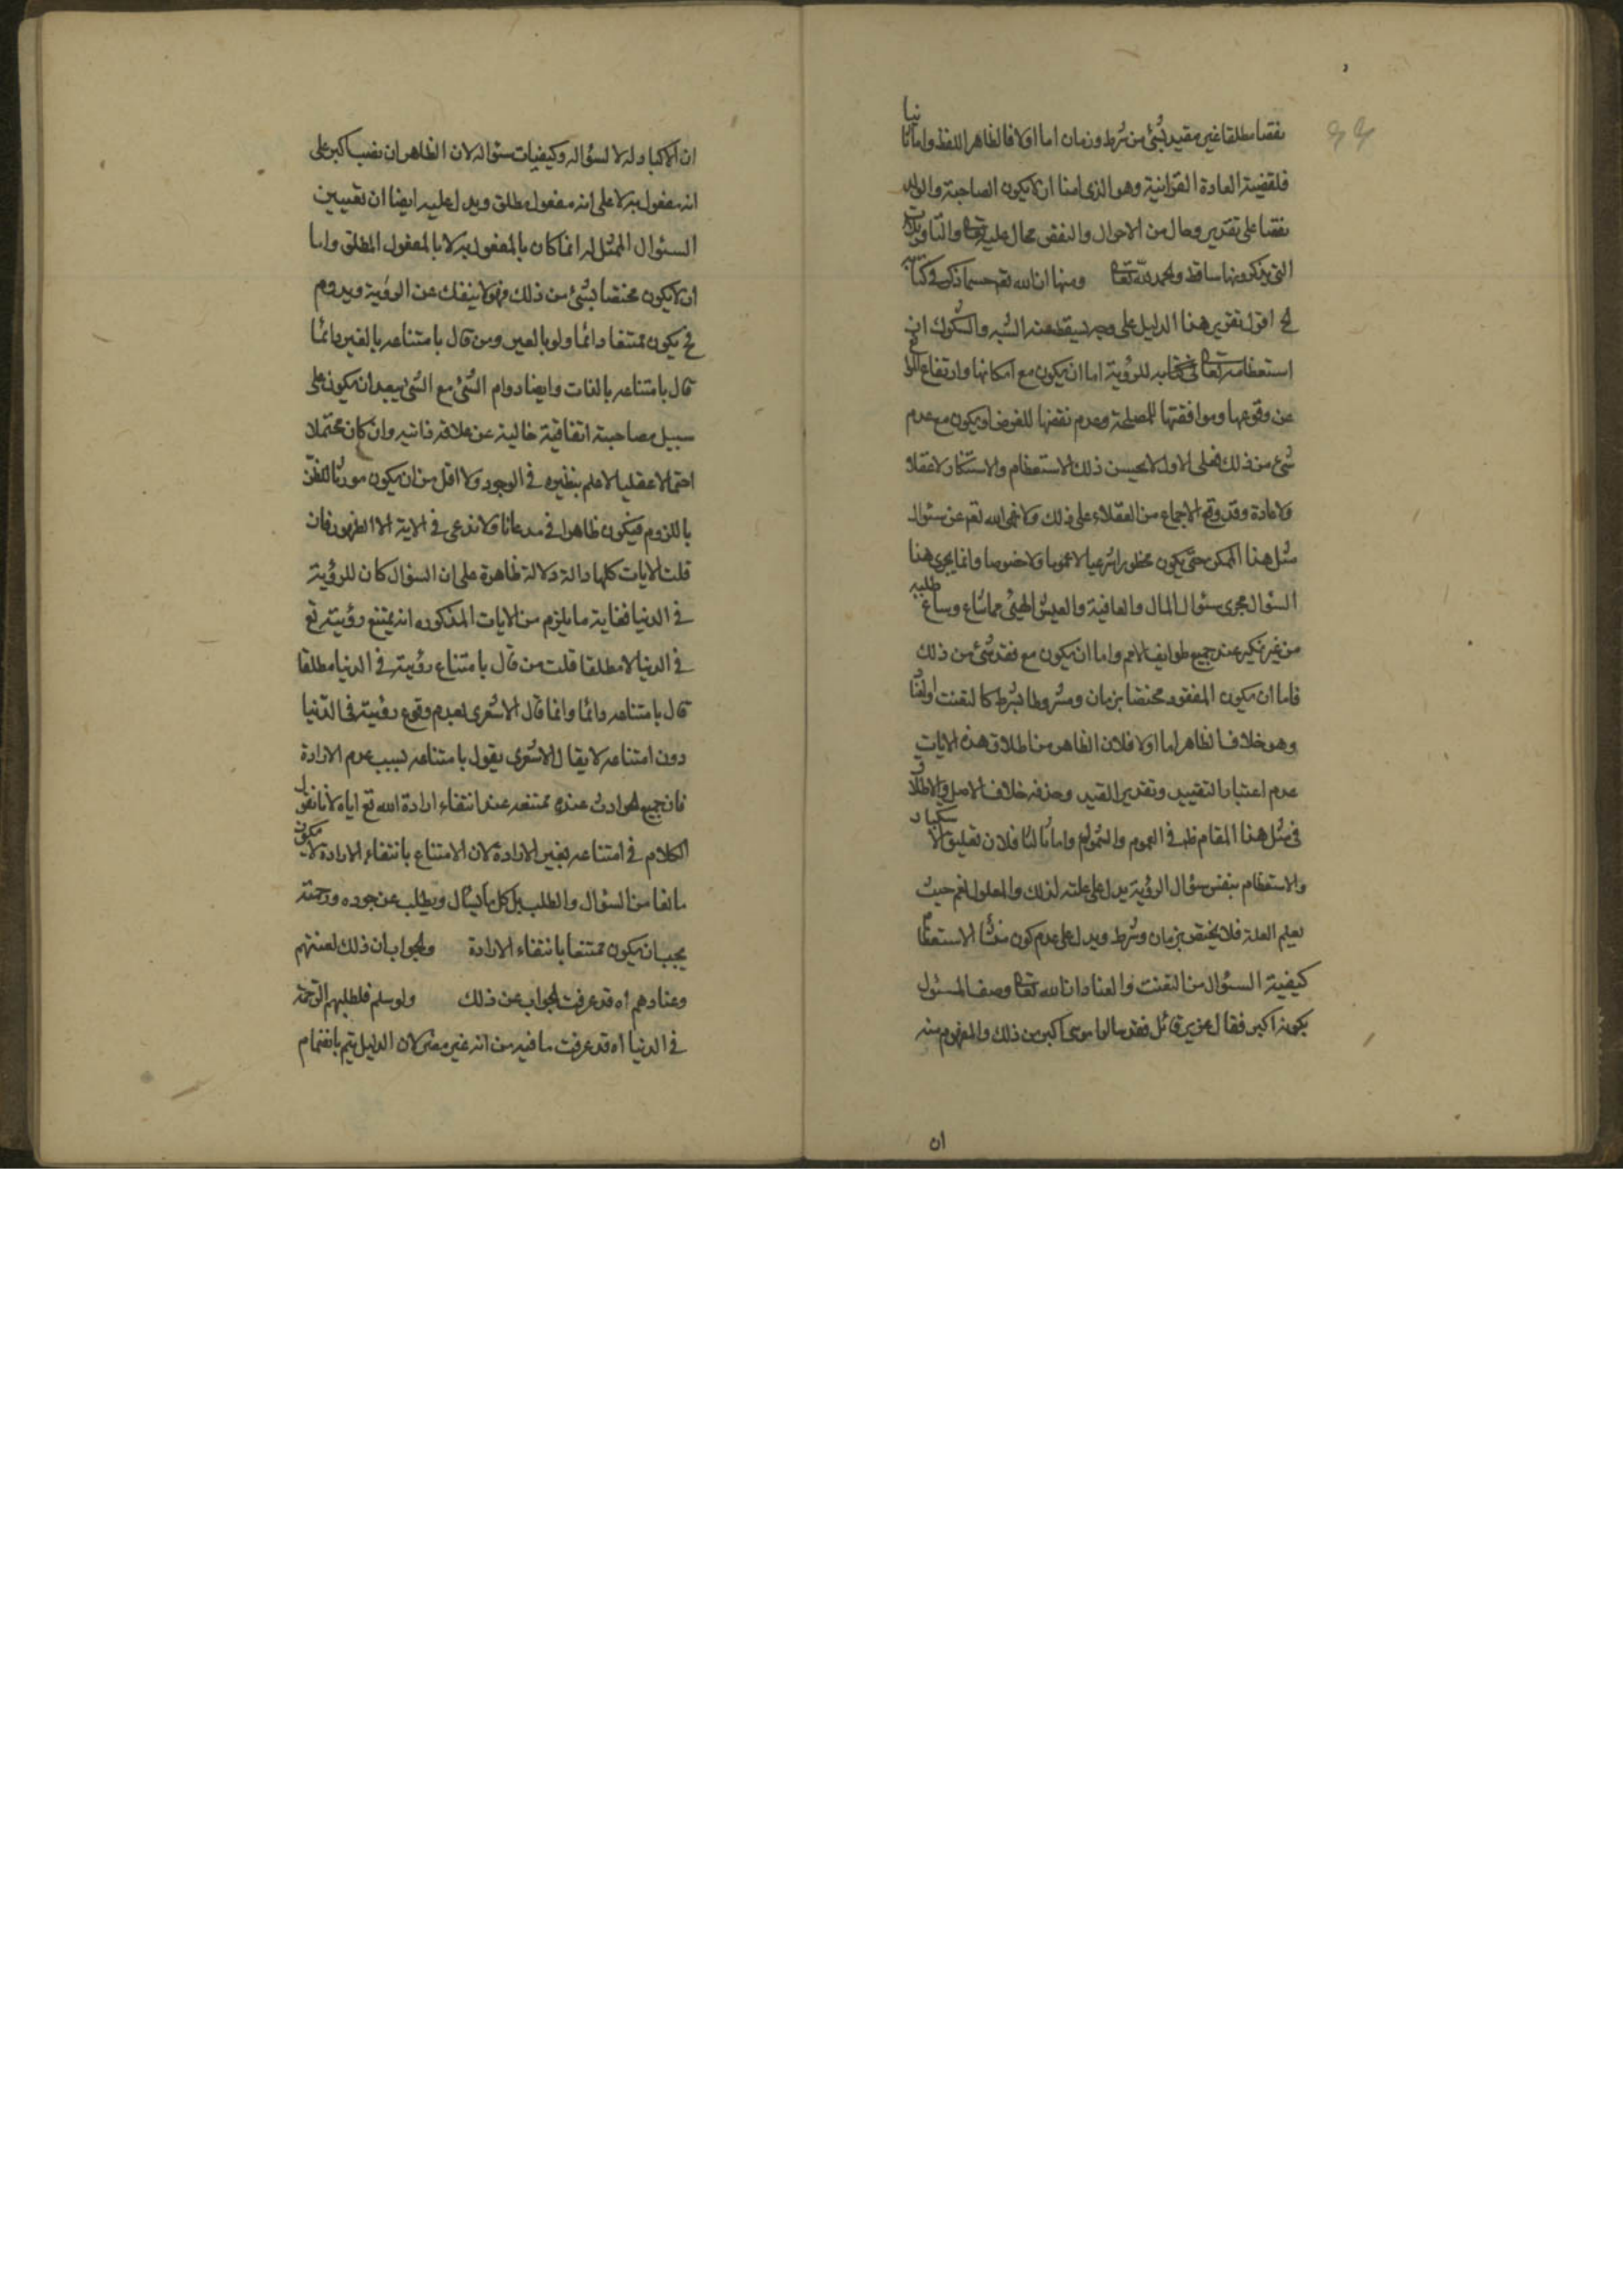 نقصا مطلقا غير مقيد بشئ من شرط وزمان اما اولا فالظاهر اللفظ واما ثانيا
فلقضية العادة القرآنية وهو الذى امنا ان لا يكون الصاحبة والولد
نقصا على تقدير وحال من الاحوال والنقص محال عليه تعالى والتاويلات
التى يذكرونها ساقط والحمد لله تعالى ومنها ان الله تعه حسبما ذكره فى كتابه
الخ اقول تقرير هذا الدليل على وجه يسقط عنه الشبه والشكوك ان
استعظامه تعالى فى كتابه للرؤية اما ان يكون مع امكانها وارتفاع
عن وقوعها وموافقتها للمصلحة وعدم نقضها للغرض او يكون مع عدم
شئ من ذلك فعلى الاول لا يحسن ذلك الاستعظام والاستنكار لا عقلا
ولا عادة وقد وقع الاجماع من العقلاء على ذلك ولا نهى الله تعه عن سئوال
مثل هذا الممكن حتى يكون محظورا شرعيا لا عموما ولا خصوصا وانما يجرى هذا
السئوال مجرى سئوال المال والعافية والعيش الهنئ مما شاع وساغ طلبه
من غير نكير عند جميع طوايف الامم واما ان يكون مع فقد شئ من ذلك
فاما ان يكون المفقود مختصا بزمان ومشروطا بشرط كالتعنت اولا
وهو خلاف الظاهر اما اولا فلان الظاهر من اطلاق هذه الايات
عدم اعتبار التقييد وتقدير القيد وحذفه خلاف الاصل والاطلاق
فى مثل هذا المقام ظ فى العموم والشمول واما ثالثا فلان تعليق الاستكبار
والاستعظام بنفس سؤال الرؤية يدل على علته لذلك والمعلول انعم حيث
تعليم العلة فلا يختص بزمان وشرط ويدل على عدم كون منشأ الاستعظام
كيفية السئوال من التعنت والعناد ان الله تعالى وصف المسئول
بكونه اكبر فقال عز من قائل فقد سالوا موسى اكبر من ذلك والمفهوم منه
ان
ان الاكبار له لا لسؤاله وكيفيات سئواله لان الظاهر ان نصب اكبر على
انه مفعول به لا على انه مفعول مطلق ويدل عليه ايضا ان تعيين
السئوال الممثل له انما كان بالمفعول به لا بالمفعول المطلق واما
ان لا يكون مختصا بشئ من ذلك فهو لا ينفك عن الرؤية ويدوم
فح يكون ممتنعا دائما ولو بالغير ومن قال بامتناعه بالغير دائما
قال بامتناعه بالذات وايضا دوام الشئ مع الشئ يبعد ان يكون على
سبيل مصاحبة اتفاقية خالية عن علاقة ذاتيه وان كان محتملا
احتمالا عقليا لا علم بنظيره فى الوجود ولا اقل من ان يكون مورثا للظن
باللزوم فيكون ظاهرا فى مدعانا ولا ندعى فى الاية الا الظهور فان
قلت الايات كلها دالة دلالة ظاهرة على ان السؤال كان للرؤية
فى الدنيا فغاية ما يلزم من الايات المذكوره انه يمتنع رؤيته تع
فى الدنيا لا مطلقا قلت من قال بامتناع رؤيته فى الدنيا مطلقا
قال بامتناعه دائما وانما قال الاشعرى بعدم وقوع رؤيته فى الدنيا
دون امتناعه لا يقال الاشعرى يقول بامتناعه بسبب عدم الارادة
فان جميع الحوادث عنده ممتنعه عند انتفاء ارادة الله تع اياه لانا نقول
الكلام فى امتناعه بغير الارادة لان الامتناع بانتفاء الارادة لا يكون
مانعا من السؤال والطلب بل كل ما يسال ويطلب عن جوده ورحمته
يجب ان يكون ممتنعا بانتفاء الارادة والجواب ان ذلك لعنتهم
وعنادهم اه قد عرفت الجواب عن ذلك ولو سلم فلطلبهم الرحمة
فى الدنيا اه قد عرفت ما فيه من انه غير مضر لان الدليل يتم بانضمام